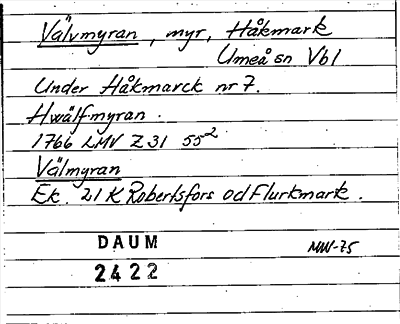 Välvmyran, myr, Håkmark
Umeå sn Vbl
Under Håkmarck nr 7.
Hwälfmyran.
1766 LMV Z 31 55²
Välmyran
Ek. 21 K Robertsfors o d Flurkmark.
DAUM
MW-75
2422